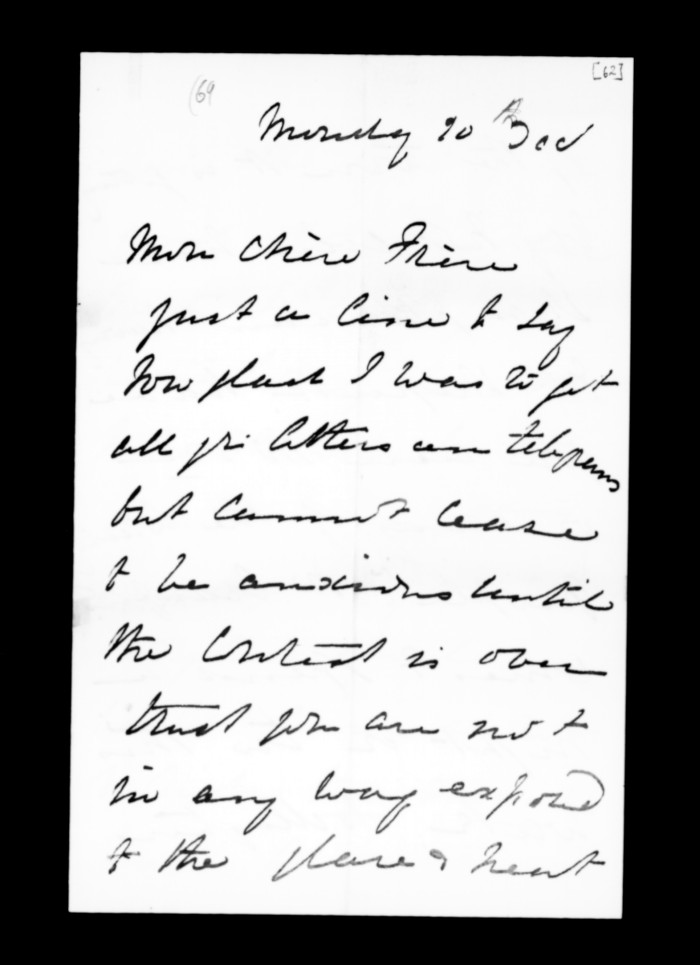 [62]
(69
Monday 20th Dec
Mon Chère Frère
just a line to say
how glad I was to get
all yr letters and telegrams
but cannot cease
to be anxious until
the Contest is over
trust you are not
in any way exposed
to the glare & heat